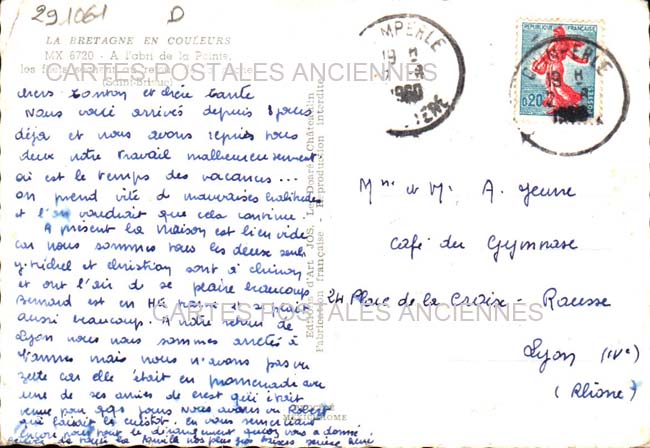 291061 D
LA BRETAGNE EN COULEURS
MX 6720 - A l'abri de la Pointe,
los
CARTES POSTALES ANCIENNES
chers Tonton et chère tante
Nous voici arrivés depuis 8 jours
déjà et nous avons repris tous
deux notre travail malheureusement
où est le temps des vacances...
on prend vite de mauvaises habitudes
et l'on voudrait que cela continue.
A présent la maison est bien vide
car nous sommes tous les deux seuls
Michel et Christian sont à
et ont l'air de se plaire beaucoup
Bernard est en et se plait
aussi beaucoup. A notre retour de
Lyon nous nous sommes arrêtés à
mais nous n'avons pas vu
car elle était en promenade avec
une de ses amies de Brest qui était
venue pour qqs jours nous avons vu Robert
qui faisait le cuistot. En vous remerciant
encore pour tout le dérangement qu'on vous a donné
de toute la famille nos plus gros baisers
Editions d'Art JOS Le Doaré, Châteaulin
Fabrication française - Reproduction interdite
MEXICHROME
QUIMPERLE
19 H
1960
FINISTERE
REPUBLIQUE FRANÇAISE
0,20
POSTES
QUIMPERLE
19 H
Mme et Mr. A.
Café du Gymnase
24 Place de la Croix-Rousse
CARTES POSTALES ANCIENNES
Lyon (IVe)
(Rhône)